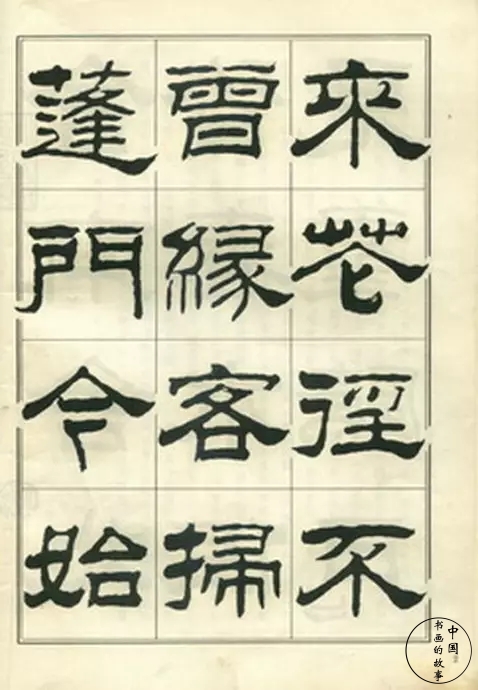 來花徑不
曾緣客掃
蓬門今始
中国
书画的故事